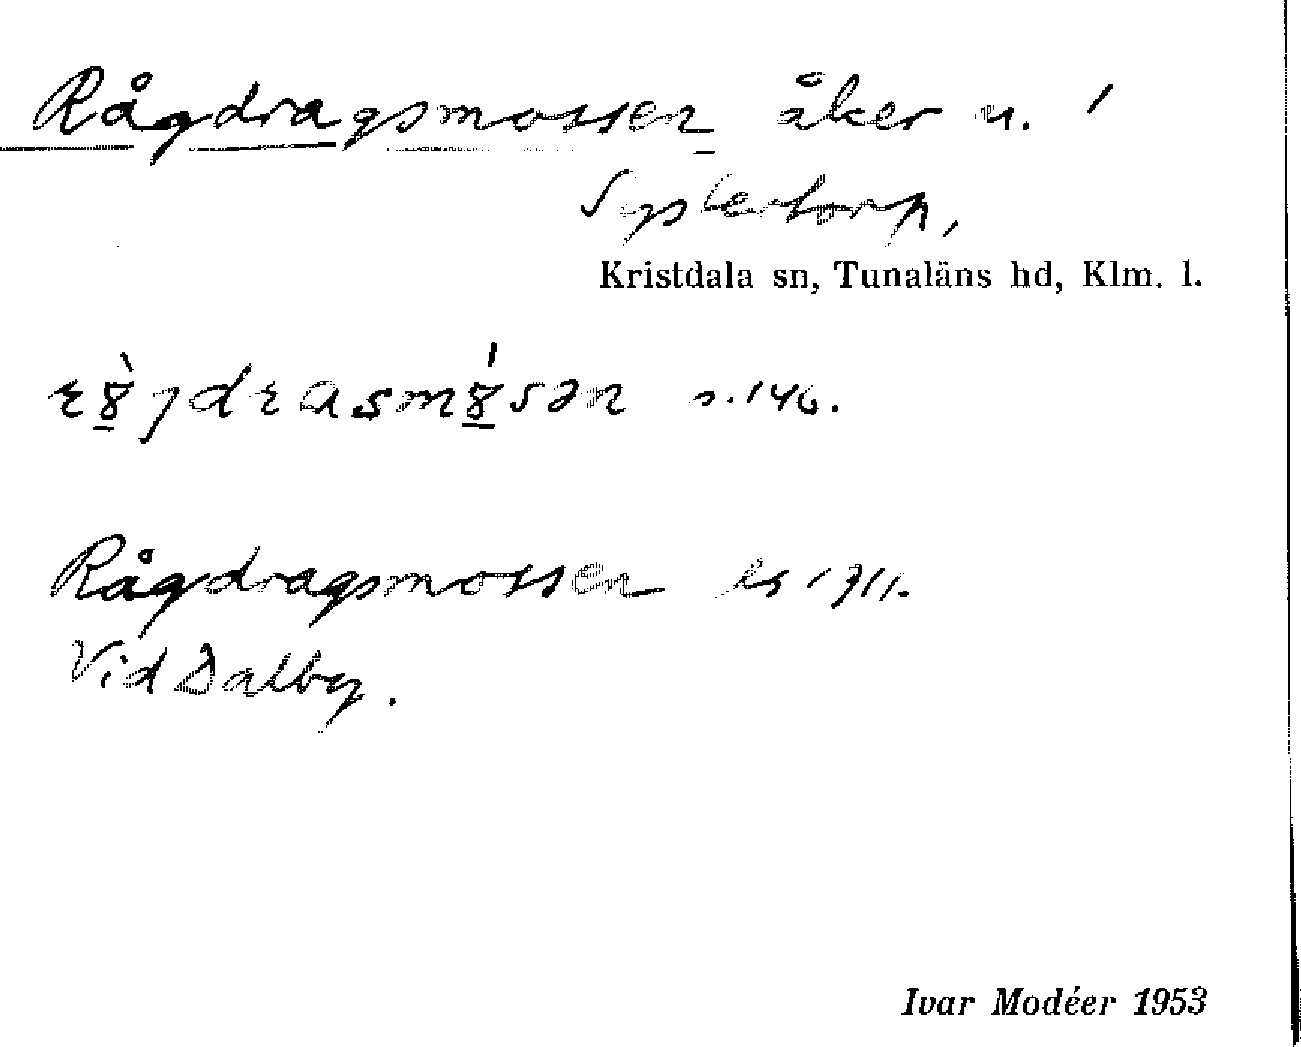 Rågdragsmossen åker u. /
Systertorp,
Kristdala sn, Tunaläns hd, Klm. l.
s. 146.
Rågdragsmossen ls 1711.
Vid Dalby.
Ivar Modéer 1953